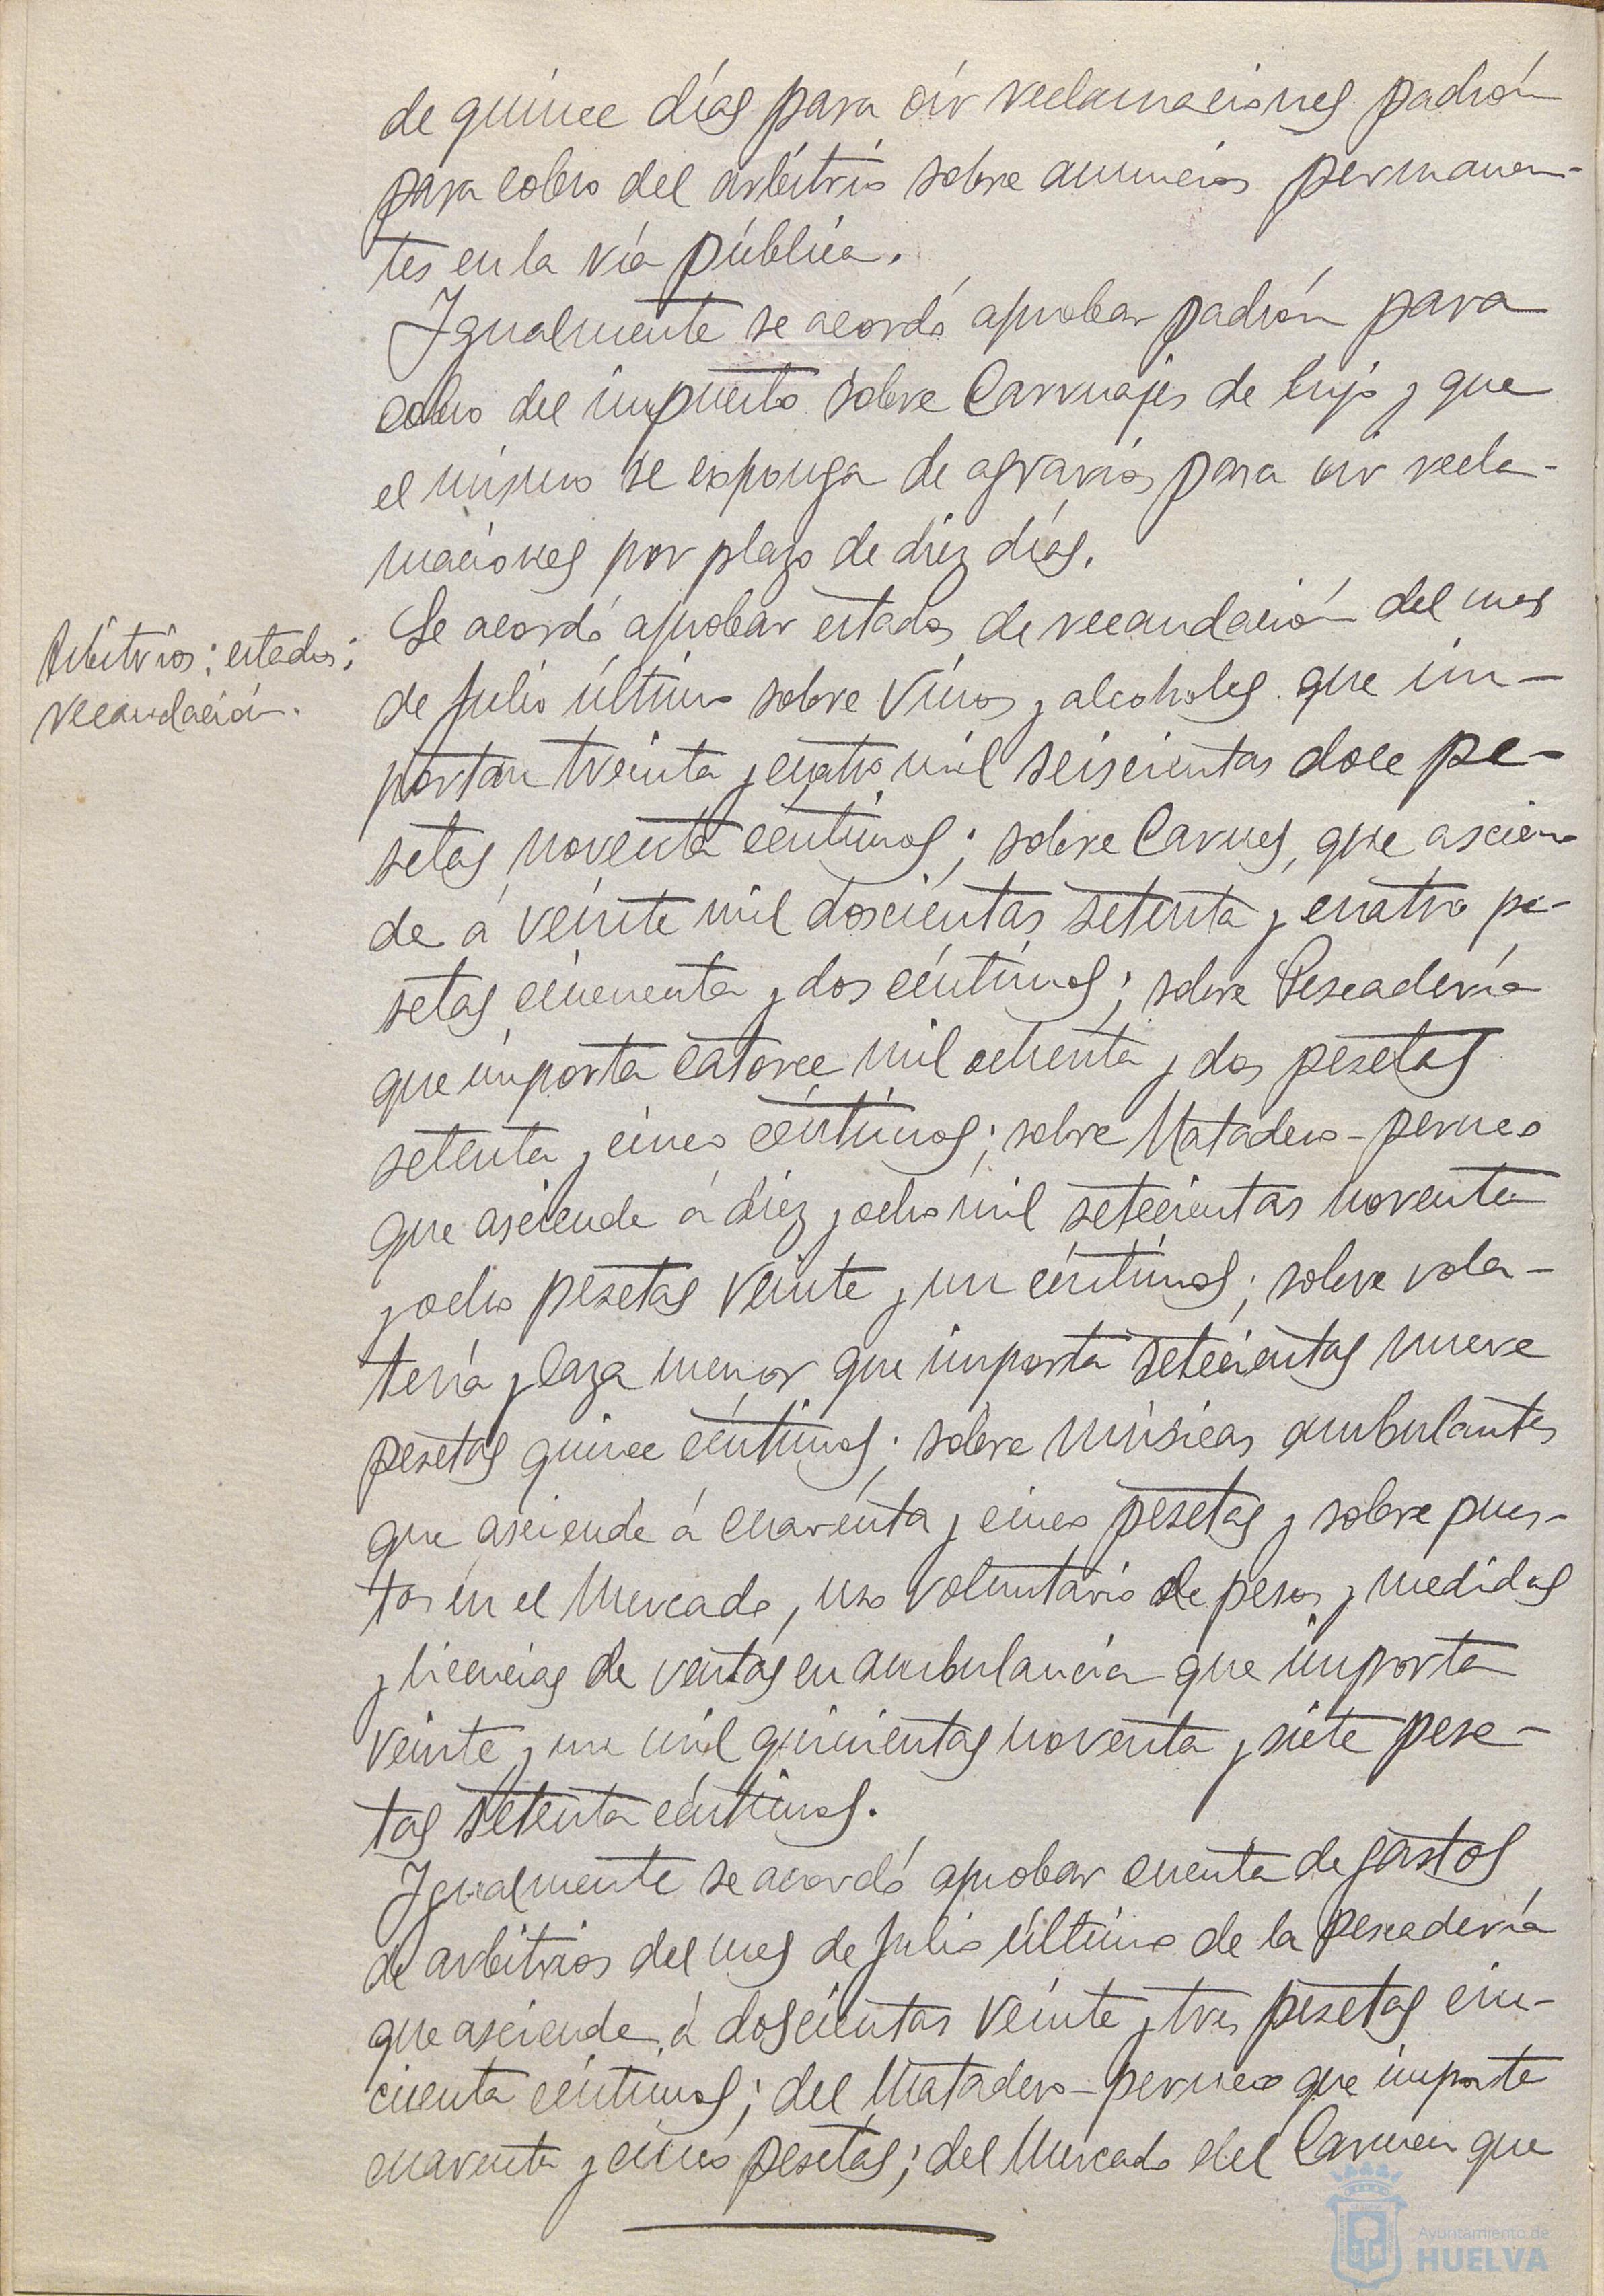 de quince días para oir reclamaciones padrón
para cobro del arbitrio sobre anuncios permanen-
tes en la vía pública.
Igualmente se acordó aprobar padrón para
cobro del impuesto sobre Carruajes de lujo y que
el mismo se exponga de agravios para oir recla-
maciones por plazo de diez días.
Arbitrios: estados:
recaudación.
Se acordó aprobar estados de recaudación del mes
de Julio último sobre Vinos y alcoholes que im-
portan treinta y cuatro mil seiscientas doce pe-
setas noventa céntimos; sobre Carnes, que ascien-
de á veinte mil doscientas setenta y cuatro pe-
setas cincuenta y dos céntimos; sobre Pescadería
que importa catorce mil ochenta y dos pesetas
setenta y cinco céntimos; sobre Matadero-perneo
que asciende á diez y ocho mil setecientas noventa
y ocho pesetas veinte y un céntimos; sobre vola-
tería y caza menor que importa setecientas nueve
pesetas quince céntimos; sobre músicas ambulantes
que asciende á cuarenta y cinco pesetas y sobre pues-
tos en el Mercado, uso voluntario de pesos y medidas
y licencias de ventas en ambulancia que importa
veinte y un mil quinientas noventa y siete pese-
tas setenta céntimos.
Igualmente se acordó aprobar cuenta de gastos
de arbitrios del mes de Julio último de la pescadería
que asciende á doscientas veinte y tres pesetas cin-
cuenta céntimos; del Matadero-perneo que importa
cuarenta y cinco pesetas; del Mercado del Carmen que
Ayuntamiento de
HUELVA